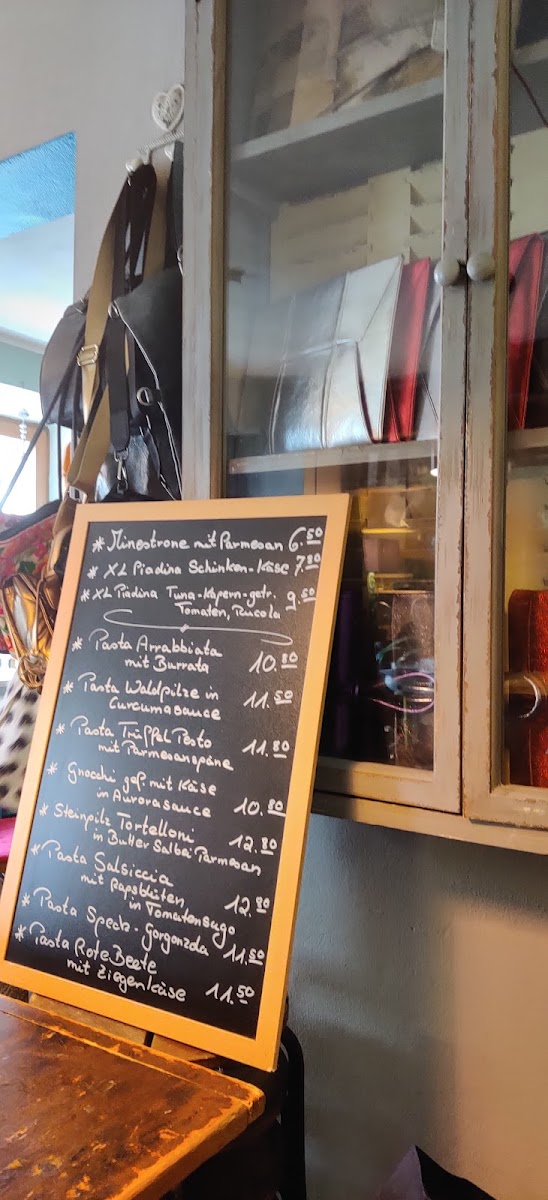 * Minestrone mit Parmesan 6.50
* XL Piadina Schinken-Käse 7.80
* XL Piadina Tuna-Kapern-getr. 9.50
Tomaten, Rucola
* Pasta Arrabbiata
mit Burrata 10.80
* Pasta Waldpilze in
Curcumasauce 11.50
* Pasta Trüffel Pesto
mit Parmesanspäne 11.80
* Gnocchi gef. mit Käse
in Aurorasauce 10.80
* Steinpilz Tortelloni
in Butter Salbei Parmesan 12.80
* Pasta Salsiccia
mit Rapsblüten,
in Tomatensugo 12.80
* Pasta Speck-Gorgonzola 11.50
* Pasta Rote Beete
mit Ziegenkäse 11.50